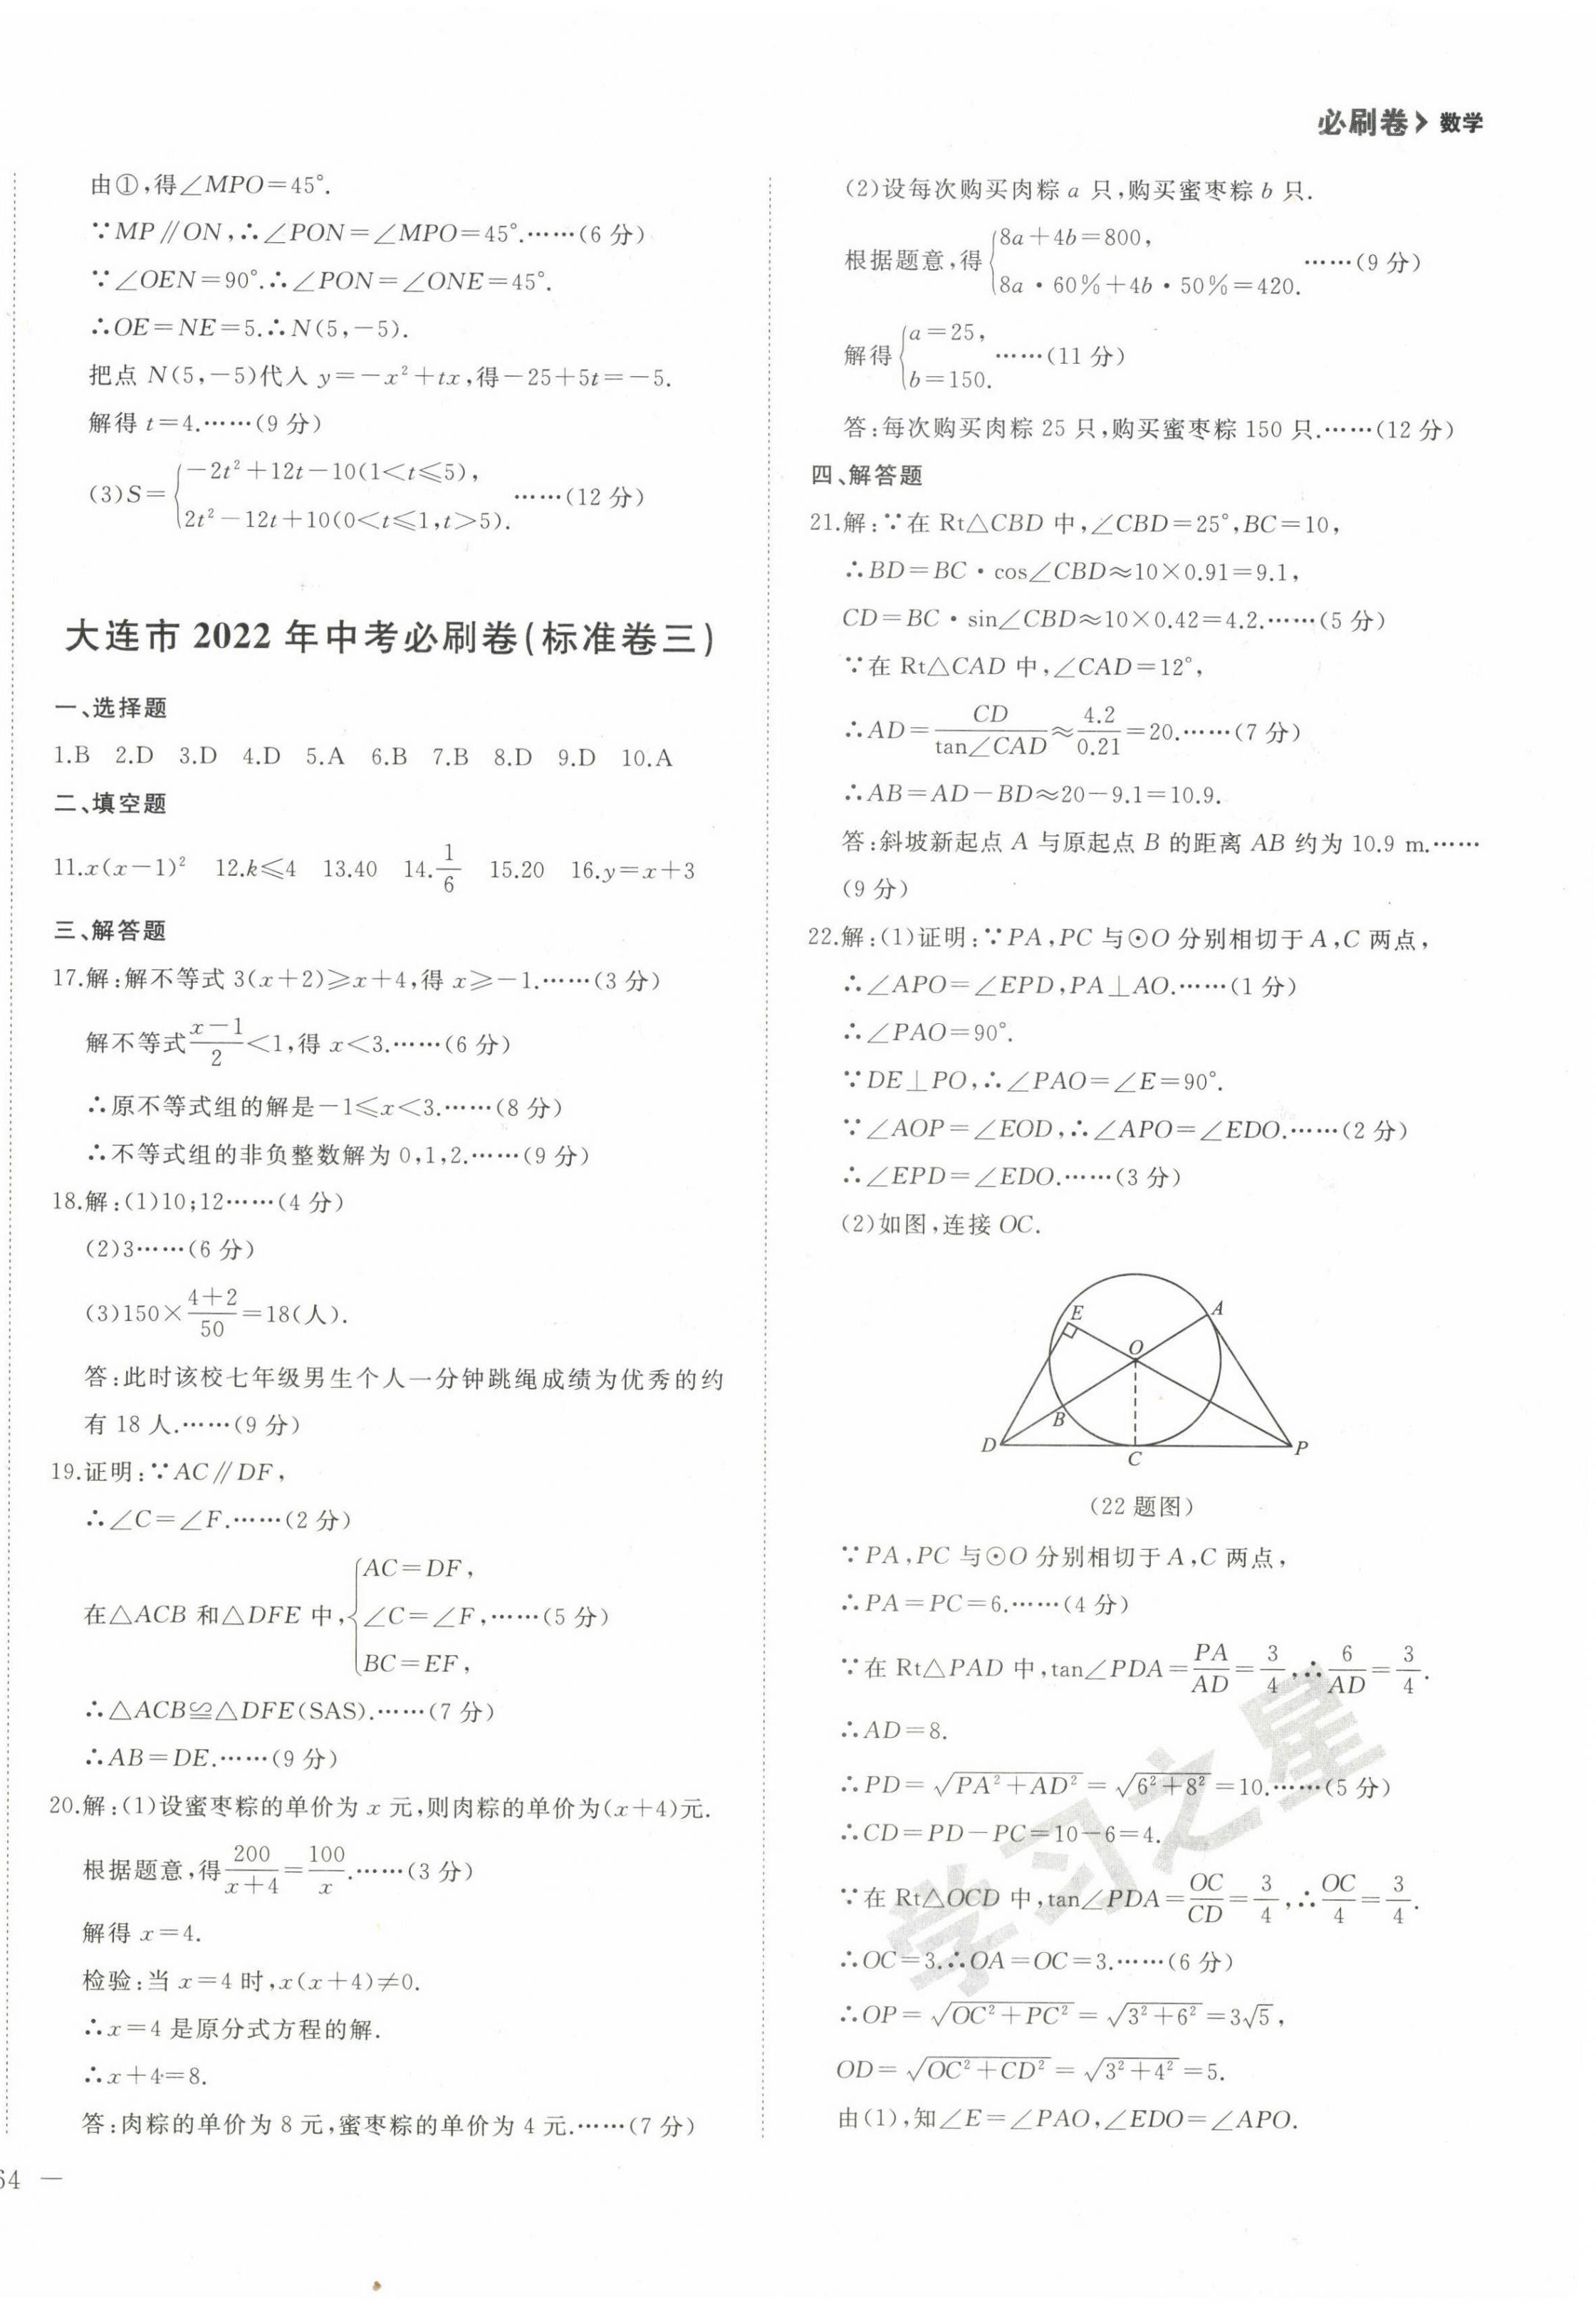 必刷卷 数学
由①,得∠MPO=45°.
∵MP∥ON,∴∠PON=∠MPO=45°.……(6分)
∵∠OEN=90°.∴∠PON=∠ONE=45°.
∴OE=NE=5.∴N(5,-5).
把点 N(5,-5)代入 y=-x²+tx,得-25+5t=-5.
解得 t=4.……(9分)
(3)S={-2t²+12t-10(1<t≤5),
2t²-12t+10(0<t≤1,t>5). ……(12分)
大连市 2022 年中考必刷卷(标准卷三)
一、选择题
1.B 2.D 3.D 4.D 5.A 6.B 7.B 8.D 9.D 10.A
二、填空题
11.x(x-1)² 12.k≤4 13.40 14.1/6 15.20 16.y=x+3
三、解答题
17.解:解不等式 3(x+2)≥x+4,得 x≥-1.……(3分)
解不等式(x-1)/2<1,得 x<3.……(6分)
∴原不等式组的解是-1≤x<3.……(8分)
∴不等式组的非负整数解为 0,1,2.……(9分)
18.解:(1)10;12……(4分)
(2)3……(6分)
(3)150×(4+2)/50=18(人).
答:此时该校七年级男生个人一分钟跳绳成绩为优秀的约
有 18 人.……(9分)
19.证明:∵AC∥DF,
∴∠C=∠F.……(2分)
在△ACB 和△DFE 中,{AC=DF,
∠C=∠F,……(5分)
BC=EF,
∴△ACB≌△DFE(SAS).……(7分)
∴AB=DE.……(9分)
20.解:(1)设蜜枣粽的单价为 x 元,则肉粽的单价为(x+4)元.
根据题意,得200/(x+4)=100/x.……(3分)
解得 x=4.
检验:当 x=4 时,x(x+4)≠0.
∴x=4 是原分式方程的解.
∴x+4=8.
答:肉粽的单价为 8 元,蜜枣粽的单价为 4 元.……(7分)
64 —
(2)设每次购买肉粽 a 只,购买蜜枣粽 b 只.
根据题意,得{8a+4b=800,
8a·60%+4b·50%=420. ……(9分)
解得{a=25,
b=150. ……(11分)
答:每次购买肉粽 25 只,购买蜜枣粽 150 只.……(12分)
四、解答题
21.解:∵在 Rt△CBD 中,∠CBD=25°,BC=10,
∴BD=BC·cos∠CBD≈10×0.91=9.1,
CD=BC·sin∠CBD≈10×0.42=4.2.……(5分)
∵在 Rt△CAD 中,∠CAD=12°,
∴AD=CD/tan∠CAD≈4.2/0.21=20.……(7分)
∴AB=AD-BD≈20-9.1=10.9.
答:斜坡新起点 A 与原起点 B 的距离 AB 约为 10.9 m.……
(9分)
22.解:(1)证明:∵PA,PC 与⊙O 分别相切于 A,C 两点,
∴∠APO=∠EPD,PA⊥AO.……(1分)
∴∠PAO=90°.
∵DE⊥PO,∴∠PAO=∠E=90°.
∵∠AOP=∠EOD,∴∠APO=∠EDO.……(2分)
∴∠EPD=∠EDO.……(3分)
(2)如图,连接 OC.
E
A
O
B
D
C
P
(22 题图)
∵PA,PC 与⊙O 分别相切于 A,C 两点,
∴PA=PC=6.……(4分)
∵在 Rt△PAD 中,tan∠PDA=PA/AD=3/4,∴6/AD=3/4.
∴AD=8.
∴PD=√(PA²+AD²)=√(6²+8²)=10.……(5分)
∴CD=PD-PC=10-6=4.
∵在 Rt△OCD 中,tan∠PDA=OC/CD=3/4,∴OC/4=3/4.
∴OC=3.∴OA=OC=3.……(6分)
∴OP=√(OC²+PC²)=√(3²+6²)=3√5,
OD=√(OC²+CD²)=√(3²+4²)=5.
由(1),知∠E=∠PAO,∠EDO=∠APO.
学习之星